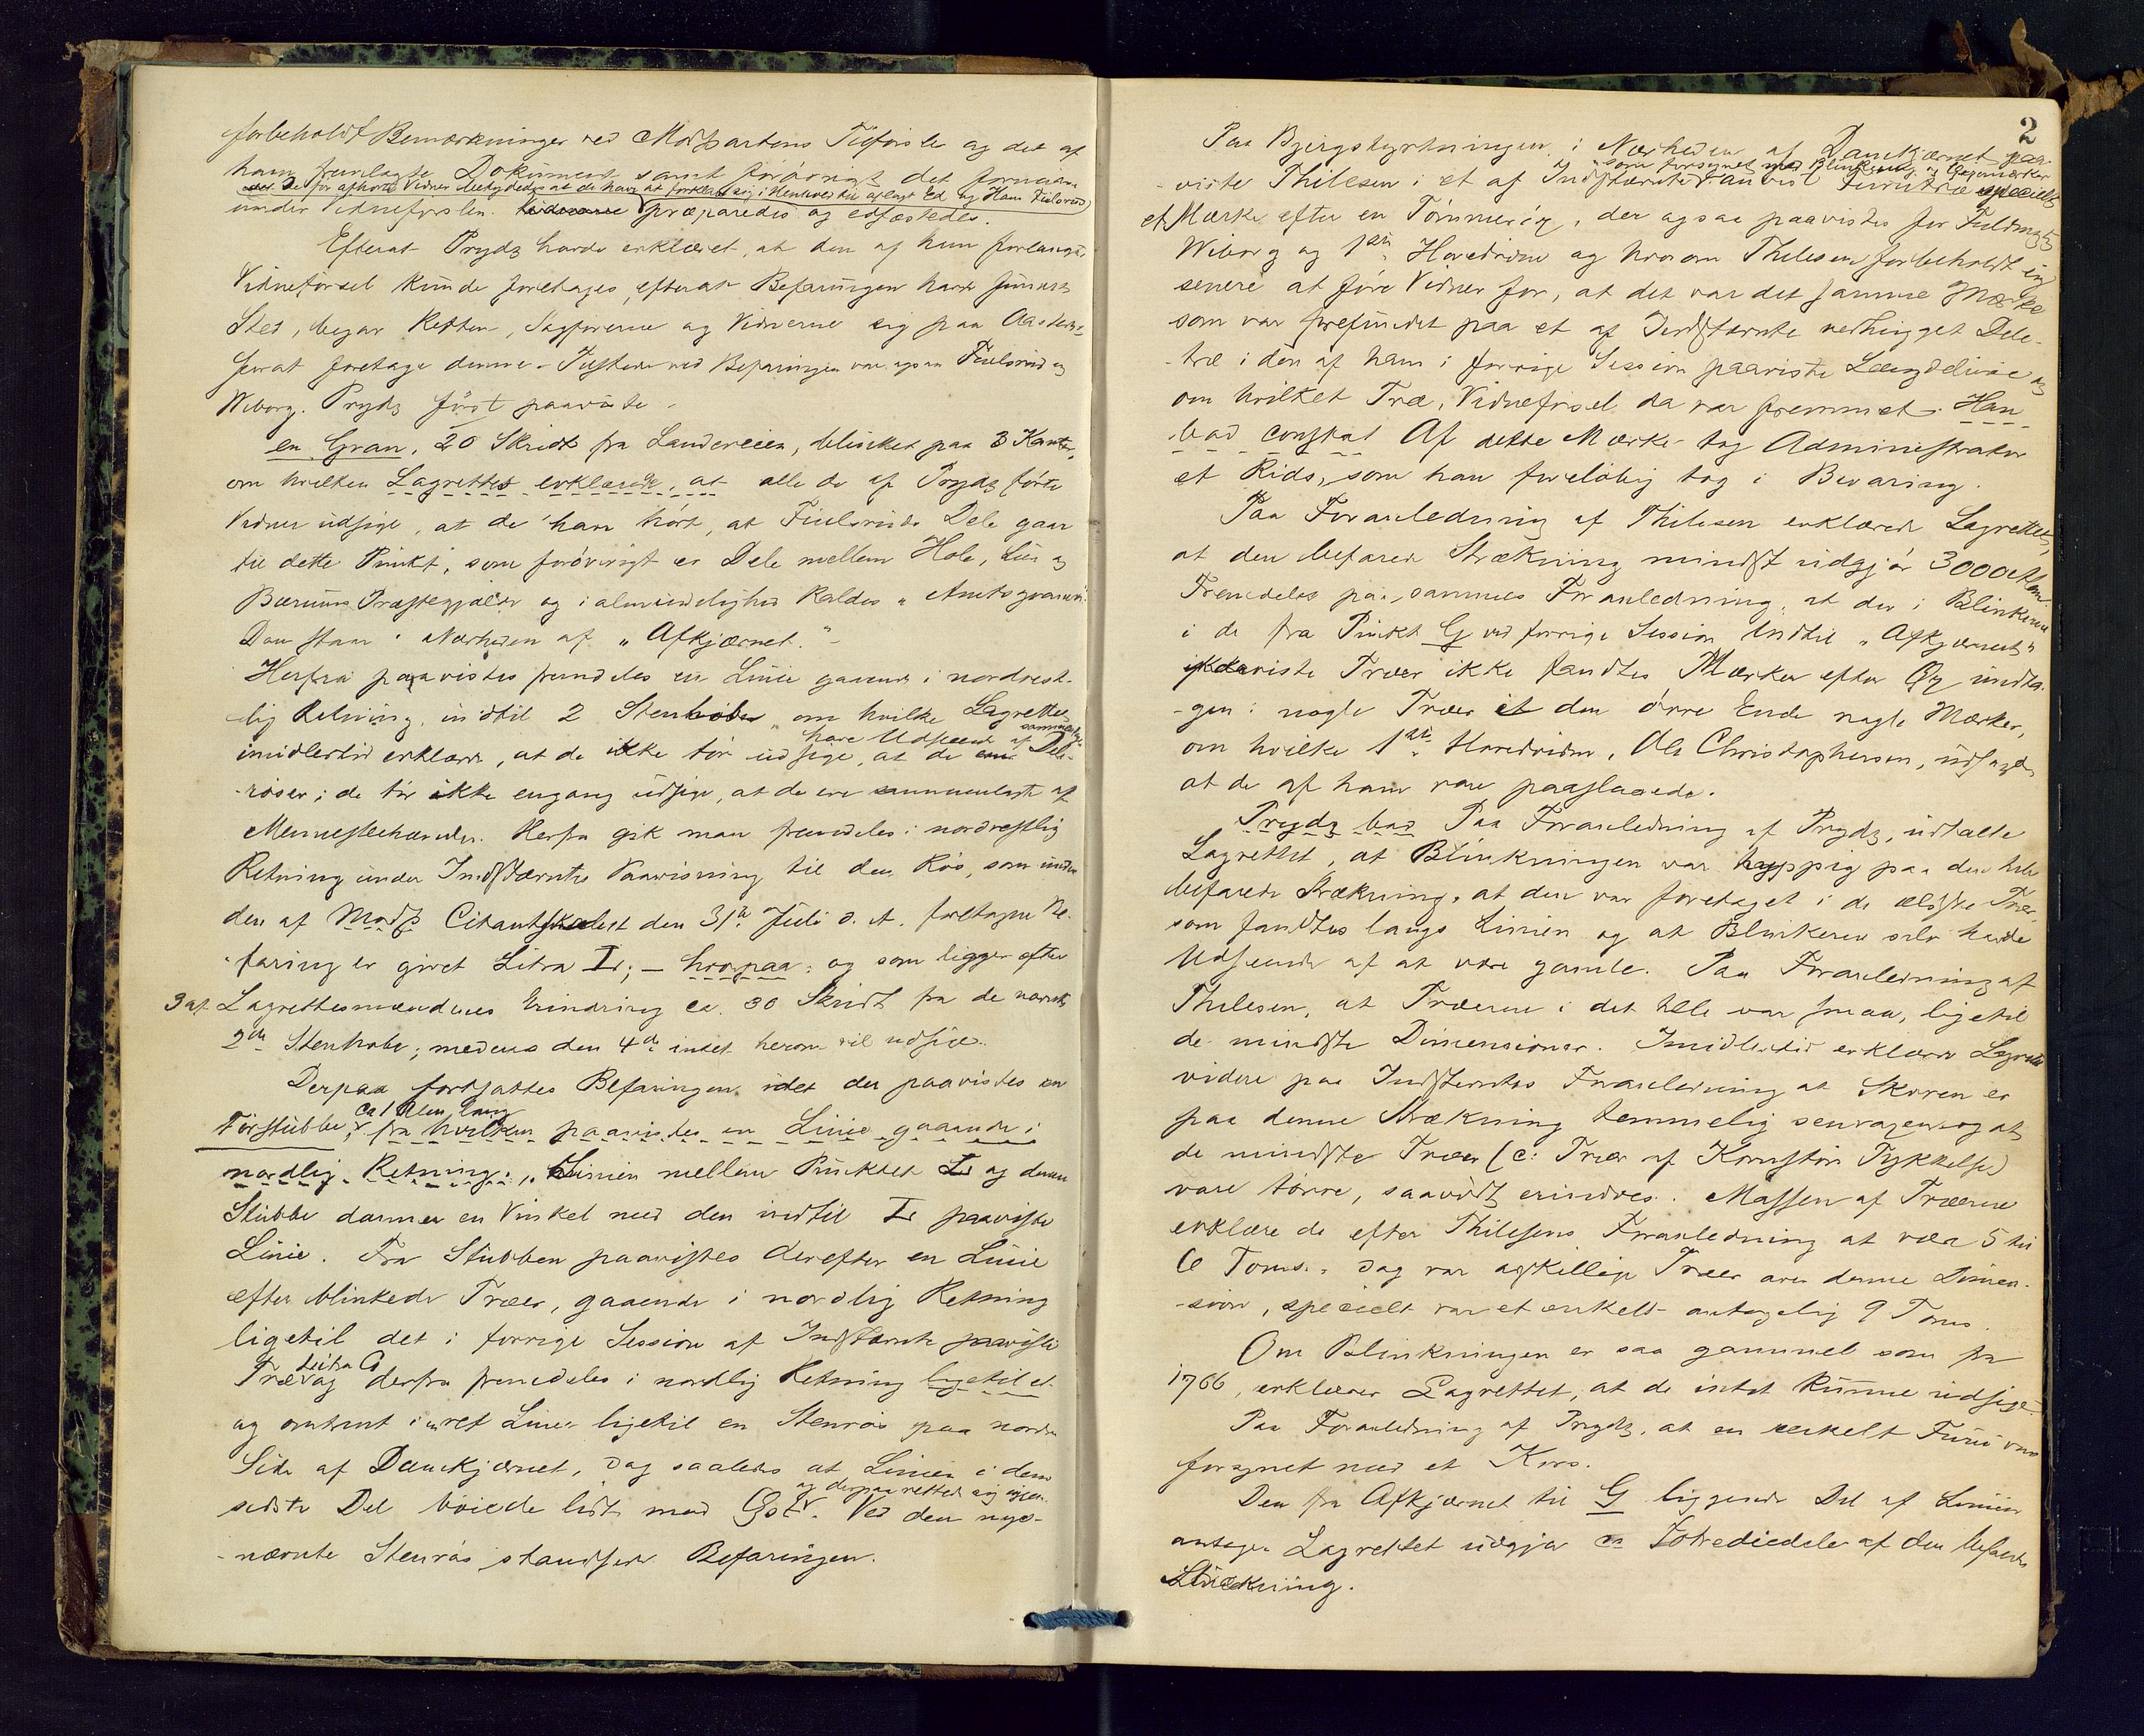 forbeholdt Bemærkninger ved Modpartens Tilførsler og det af
ham fremlagte Dokument samt forøvrigt det fornødne
De før afhørte Vidner betydedes at de have at forklare sig i Henhold til aflagt Ed og Hans Fiulsrud
under Vidneførslen. præparedes og edfæstedes.
Efterat Prydz havde erklæret, at den af ham forlangte
Vidneførsel kunde foretages, efterat Befaringen havde fundet
Sted, begav Retten, Sagførerne og Vidnerne sig paa Aastedet
forat foretage denne. Tilstede ved Befaringen var ogsaa Fiulsrud og
Wiborg. Prydz først paaviste
en Gran, 20 Skridt fra Landeveien, blinket paa 3 Kanter,
om hvilken Lagrettet erklærede, at alle de af Prydz førte
Vidner udsige, at de have hørt, at Fiulsruds Dele gaar
til dette Punkt, som forøvrigt er Dele mellem Hole, Lier og
Bærums Præstegjælde og i almindelighed kaldes "Amtsgranen".
Den staar i Nærheden af "Afkjærnet."
Herfra paavistes fremdeles en Linie gaaende i nordvest-
lig Retning, indtil 2 Stenhobe, om hvilke Lagrettet
imidlertid erklærede, at de ikke tør udsige, at de have Udseende af Dele-
røser; de tør ikke engang udsige, at de ere sammenlagte af
Menneskehænder. Herfra gik man fremdeles i nordvestlig
Retning under Indstævntes Paavisning til den Røs, som under
den af Citant den 31te Juli d. A. foretagne Be-
faring er givet Litra I; — hvorpaa; og som ligger efter
3 af Lagrettesmændenes Erindring ca. 30 Skridt fra de nævnte
2de Stenhobe; medens den 4de intet herom vil udsige.
Derpaa fortsattes Befaringen, idet der paavistes en
Tørstubbe, ca 1 Alen lang, fra hvilken paavistes en Linie gaaende i
nordlig Retning; Linien mellem Punktet I og denne
Stubbe danner en Vinkel med den indtil I paaviste
Linie. Fra Stubben paavistes derefter en Linie
efter blinkede Træer, gaaende i nordlig Retning
ligetil det i forrige Session af Indstævnte paaviste
Træ Litra G og derfra fremdeles i nordlig Retning ligetil et
og omtrent i ret Linie ligetil en Stenrøs paa nordre
Side af Damkjærnet, dog saaledes at Linien i den
sidste Del bøiede lidt mod Øst og derpaa rettede sig igjen. Ved den nys-
-nævnte Stenrøs standsede Befaringen.
2
Paa Bjergstyrtningen, i Nærheden af Damkjærnet paa-
-viste Thilesen i et af Indstævnte anvist Furutræ specielt
som forsynet med Blinkning og
et Mærke efter en Tømmerøx, der ogsaa paavistes for Fuldmægtig
Wiborg og 1ste Hovedvidne og hvorom Thilesen forbeholdt sig
senere at føre Vidner for, at det var det samme Mærke
som var forefundet paa et af Indstævnte nedhugget Dele-
-træ i den af ham i forrige Session paaviste Længdelinie og
om hvilket Træ, Vidneførsel da var fremmet. Han
bad constat Af dette Mærke tog Administrator
et Rids, som han foreløbig tog i Bevaring.
Paa Foranledning af Thilesen erklærede Lagrettet,
at den befarede Strækning mindst udgjør 3000 Alen.
Fremdeles paa sammes Foranledning, at der i Blinkerne
i de fra Punkt G ved forrige Session indtil "Afkjærnet"
paaviste Træer ikke fandtes Mærker efter Øx undta-
-gen i nogle Træer i den øvre Ende nogle Mærker,
om hvilke 1ste Hovedvidne, Ole Christophersen, udsagde
at de af ham vare paaslaaede.
Prydz bad Paa Foranledning af Prydz, udtalte
Lagrettet, at Blinkningen var hyppig paa den hele
befarede Strækning, at den var foretaget i de ældste Træer,
som fandtes langs Linien og at Blinkerne selv havde
Udseende af at være gamle. Paa Foranledning af
Thilesen, at Træerne i det hele var smaa, ligetil
de mindste Dimensioner. Imidlertid erklærede Lagrettet
videre paa Indstævntes Foranledning at Skoven er
paa denne Strækning temmelig senvoxen og at
de mindste Træer (c: Træer af Kornstør Tykkelse)
vare tørre, saavidt erindres. Massen af Træerne
erklære de efter Thilesens Foranledning at være 5 til
6 Toms. Dog var adskillige Træer over denne Dimen-
-sion, specielt var et enkelt antagelig 9 Toms.
Om Blinkningen er saa gammel som fra
1766, erklærer Lagrettet, at de intet kunne udsige.
Paa Foranledning af Prydz, at en enkelt Furu var
forsynet med et Kors.
Den fra Afkjærnet til G liggende Del af Linien
antager Lagrettet udgjør ca Totrediedele af den befarede
Strækning.